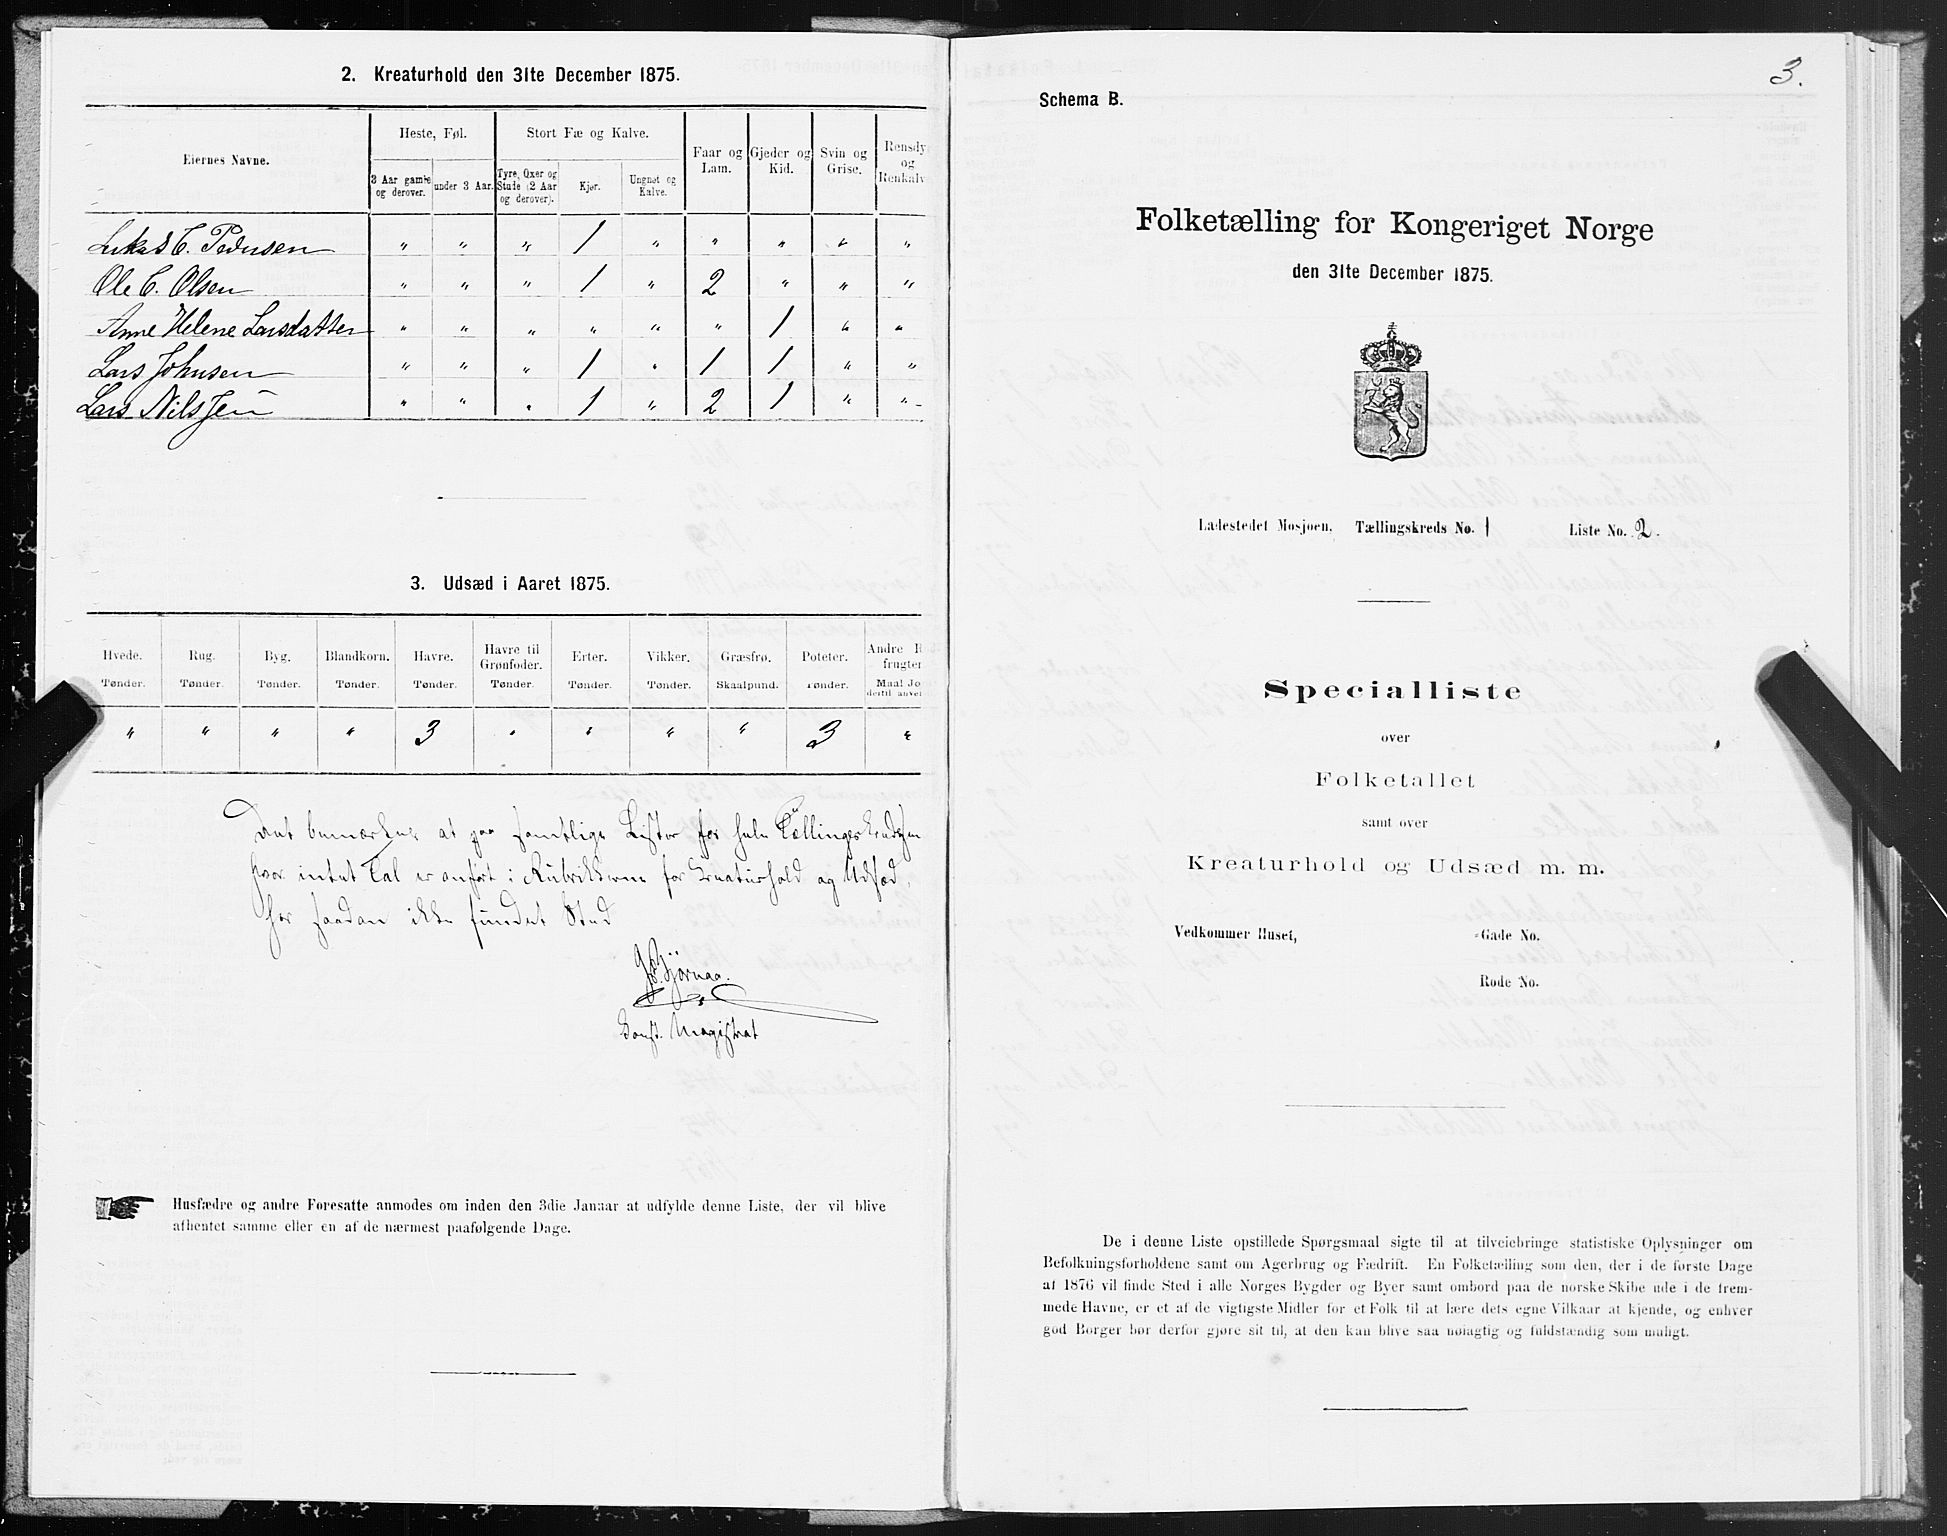 2. Kreaturhold den 31te December 1875.
Eiernes Navne.
Heste, Føl.
Stort Fæ og Kalve.
Faar og Lam.
Gjeder og Kid.
Svin og Grise.
Rensdy og Renkalv
3 Aar gamle og derover.
under 3 Aar.
Tyre, Oxer og Stude (2 Aar og derover).
Kjør.
Ungnøt og Kalve.
Lukas C. Pedersen " " " 1 " " " " "
Ole C. Olsen " " " 1 " 2 " " "
Anne Helene Larsdatter " " " " " " 1 " "
Lars Johnsen " " " 1 " 1 1 " "
Lars Nilssen " " " 1 " 2 1 " "
3. Udsæd i Aaret 1875.
Hvede. Rug. Byg. Blandkorn. Havre. Havre til Grønfoder. Erter. Vikker. Græsfrø. Poteter. Andre R frugter
Tønder. Tønder. Tønder. Tønder. Tønder. Tønder. Tønder. Tønder. Skaalpund. Tønder. Maal Jo dertil anve
" " " " 3 " " " " 3 "
Det bemærkes at paa samtlige Lister for hele Tællingskredsen
hvor intet Tal er anført i Rubrikkerne for Kreaturhold og Udsæd,
har saadan ikke fundet Sted
Bjørnaa.
Const. Magistrat
Husfædre og andre Foresatte anmodes om inden den 3die Januar at udfylde denne Liste, der vil blive
afhentet samme eller en af de nærmest paafølgende Dage.
3.
Schema B.
Folketælling for Kongeriget Norge
den 31te December 1875.
Ladestedet Mosjøen, Tællingskreds No. 1 Liste No. 2.
Specialliste
over
Folketallet
samt over
Kreaturhold og Udsæd m. m.
Vedkommer Huset, Gade No.
Rode No.
De i denne Liste opstillede Spørgsmaal sigte til at tilveiebringe statistiske Oplysninger om
Befolkningsforholdene samt om Agerbrug og Fædrift. En Folketælling som den, der i de første Dage
af 1876 vil finde Sted i alle Norges Bygder og Byer samt ombord paa de norske Skibe ude i de frem-
mede Havne, er et af de vigtigste Midler for et Folk til at lære dets egne Vilkaar at kjende, og enhver
god Borger bør derfor gjøre sit til, at den kan blive saa nøiagtig og fuldstændig som muligt.